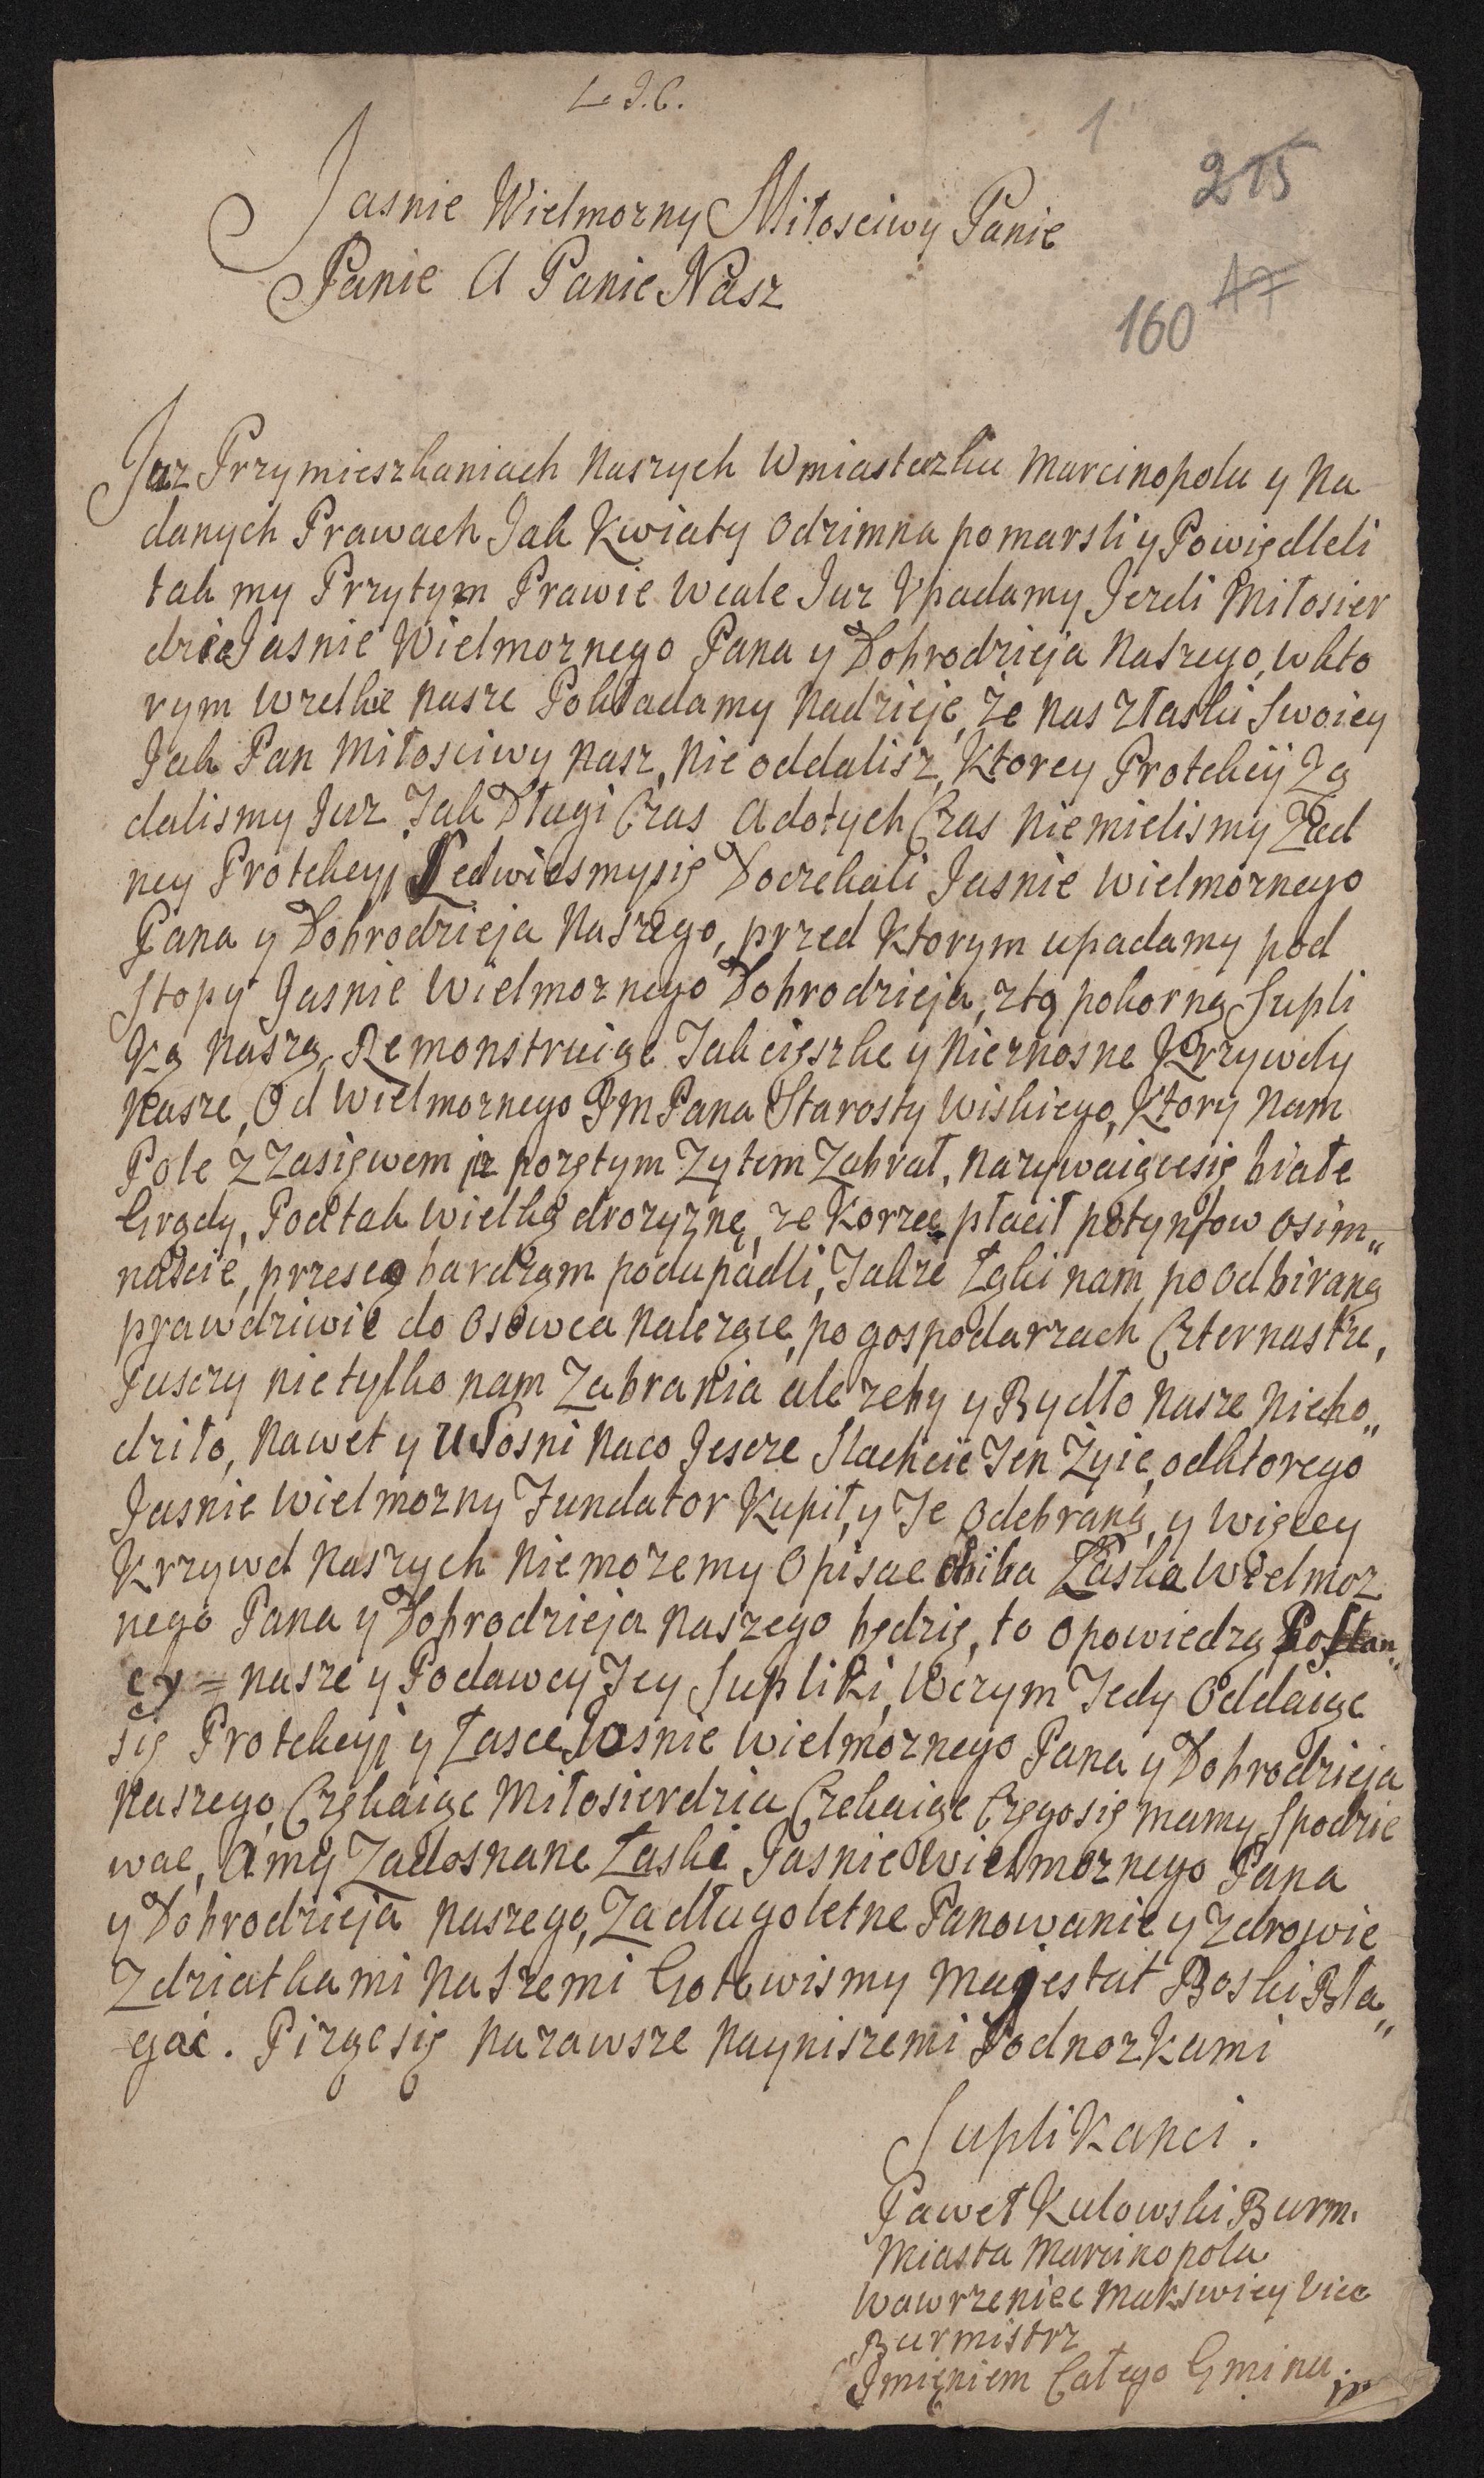 L. J. C.
1
215
47
160
Jasnie Wielmozny Miłosciwy Panie
Panie A Panie Nasz
Juz Przymieszkaniach Naszych Wmiasteczku Marcinopolu y Na
danych Prawach Jak Kwiaty Odzimna pomarsli y Powiędleli
tak my Przytym Prawie Wcale Juz Upadamy Jezeli Miłosier
dzie Jasnie Wielmoznego Pana y Dobrodzieja Naszego, wkto
rym Wzelkie nasze Pokładamy Nadzieje, Że Nas Złaski Swoiey
Jak Pan Miłosciwy Nasz, Nie oddalisz, Ktorey Protekcij Zą
dalismy Juz Jak Długi Czas A dotych Czas Niemielismy Żad
ney Protekcyi Ledwiesmysię Doczekali Jasnie Wielmoznego
Pana y Dobrodzieja Naszego, przed Ktorym upadamy pod
Stopy Jasnie Wielmoznego Dobrodzieja, ztą pokorną Supli
Ką Naszą, Remonstruiąc Jak cięszkie y Nieznosne Krzywdy
Nasze, Od Wielmoznego JM Pana Starosty Wiskiego, Ktory Nam
Pole z Zasięwem iz pozętym Zytem Zabrał, Nazywaiącesię białe
Grądy, Pod tak Wielką drozyznę, ze Korzec płacił potynfow osim„
naście, przesco bardzom podupadli, Takze Łąki nam poodbiraną
prawdziwie do Osowca Nalezące, po gospodarzach Czternastu,
Pusczy nie tylko nam Zabrania ale zeby y Bydło Nasze Niecho„
dziło, Nawet y Włosni Naco Jescze Slachcic Ten Żyie, odktorego
Jasnie Wielmozny Fundator Kupił, y Te Odebraną, y Więcey
Krzywd Naszych Niemozemy Opisac chiba Łaska Wielmoz
nego Pana y Dobrodzieja Naszego będzię, to Opowiedzą Posłan„
cy = nasze y Podawcy Tey Supliki, Wczym Tedy Oddaiąc
się Protekcyi y Łasce Jasnie Wielmoznego Pana y Dobrodzieja
Naszego, Czękaiąc Miłosierdzia Czekaiąc Czegosię mamy Spodzie
wac, A my Zadosnane Łaski Jasnie Wielmoznego Pana
y Dobrodzieja Naszego, Zadługoletne Panowanie y Zdrowie
Zdziatkami Naszemi Gotowismy Majestat Boski Bła„
gać. Pizącsię Nazawsze Nayniszemi Podnozkami
SupliKanci.
Paweł Kulowski Burm.
Miasta Marcinopola
Wawrzeniec Makswiey Vice
Burmistrz
Jmięniem Całego Gminu